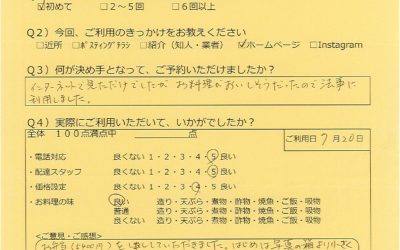 ☑初めて □2～5回 □6回以上
Q2）今回、ご利用のきっかけをお教えください
□近所 □ポスティングチラシ □紹介（知人・業者） ☑ホームページ □Instagram
Q3）何が決め手となって、ご予約いただけましたか？
インターネットで見ただけでしたが お料理がおいしそうだったので法事に
利用しました。
Q4）実際にご利用いただいて、いかがでしたか？
全体 100点満点中 点
ご利用日 7月20日
・電話対応 良くない 1・2・3・4・5 良い
・配達スタッフ 良くない 1・2・3・4・5 良い
・価格設定 良くない 1・2・3・4・5 良い
・お料理の味 良い 造り・天ぷら・煮物・酢物・焼魚・ご飯・吸物
普通 造り・天ぷら・煮物・酢物・焼魚・ご飯・吸物
良くない 造り・天ぷら・煮物・酢物・焼魚・ご飯・吸物
＜ご意見・ご感想＞
お弁当(5400円)を していただきました。はじめは写真の箱より小さく